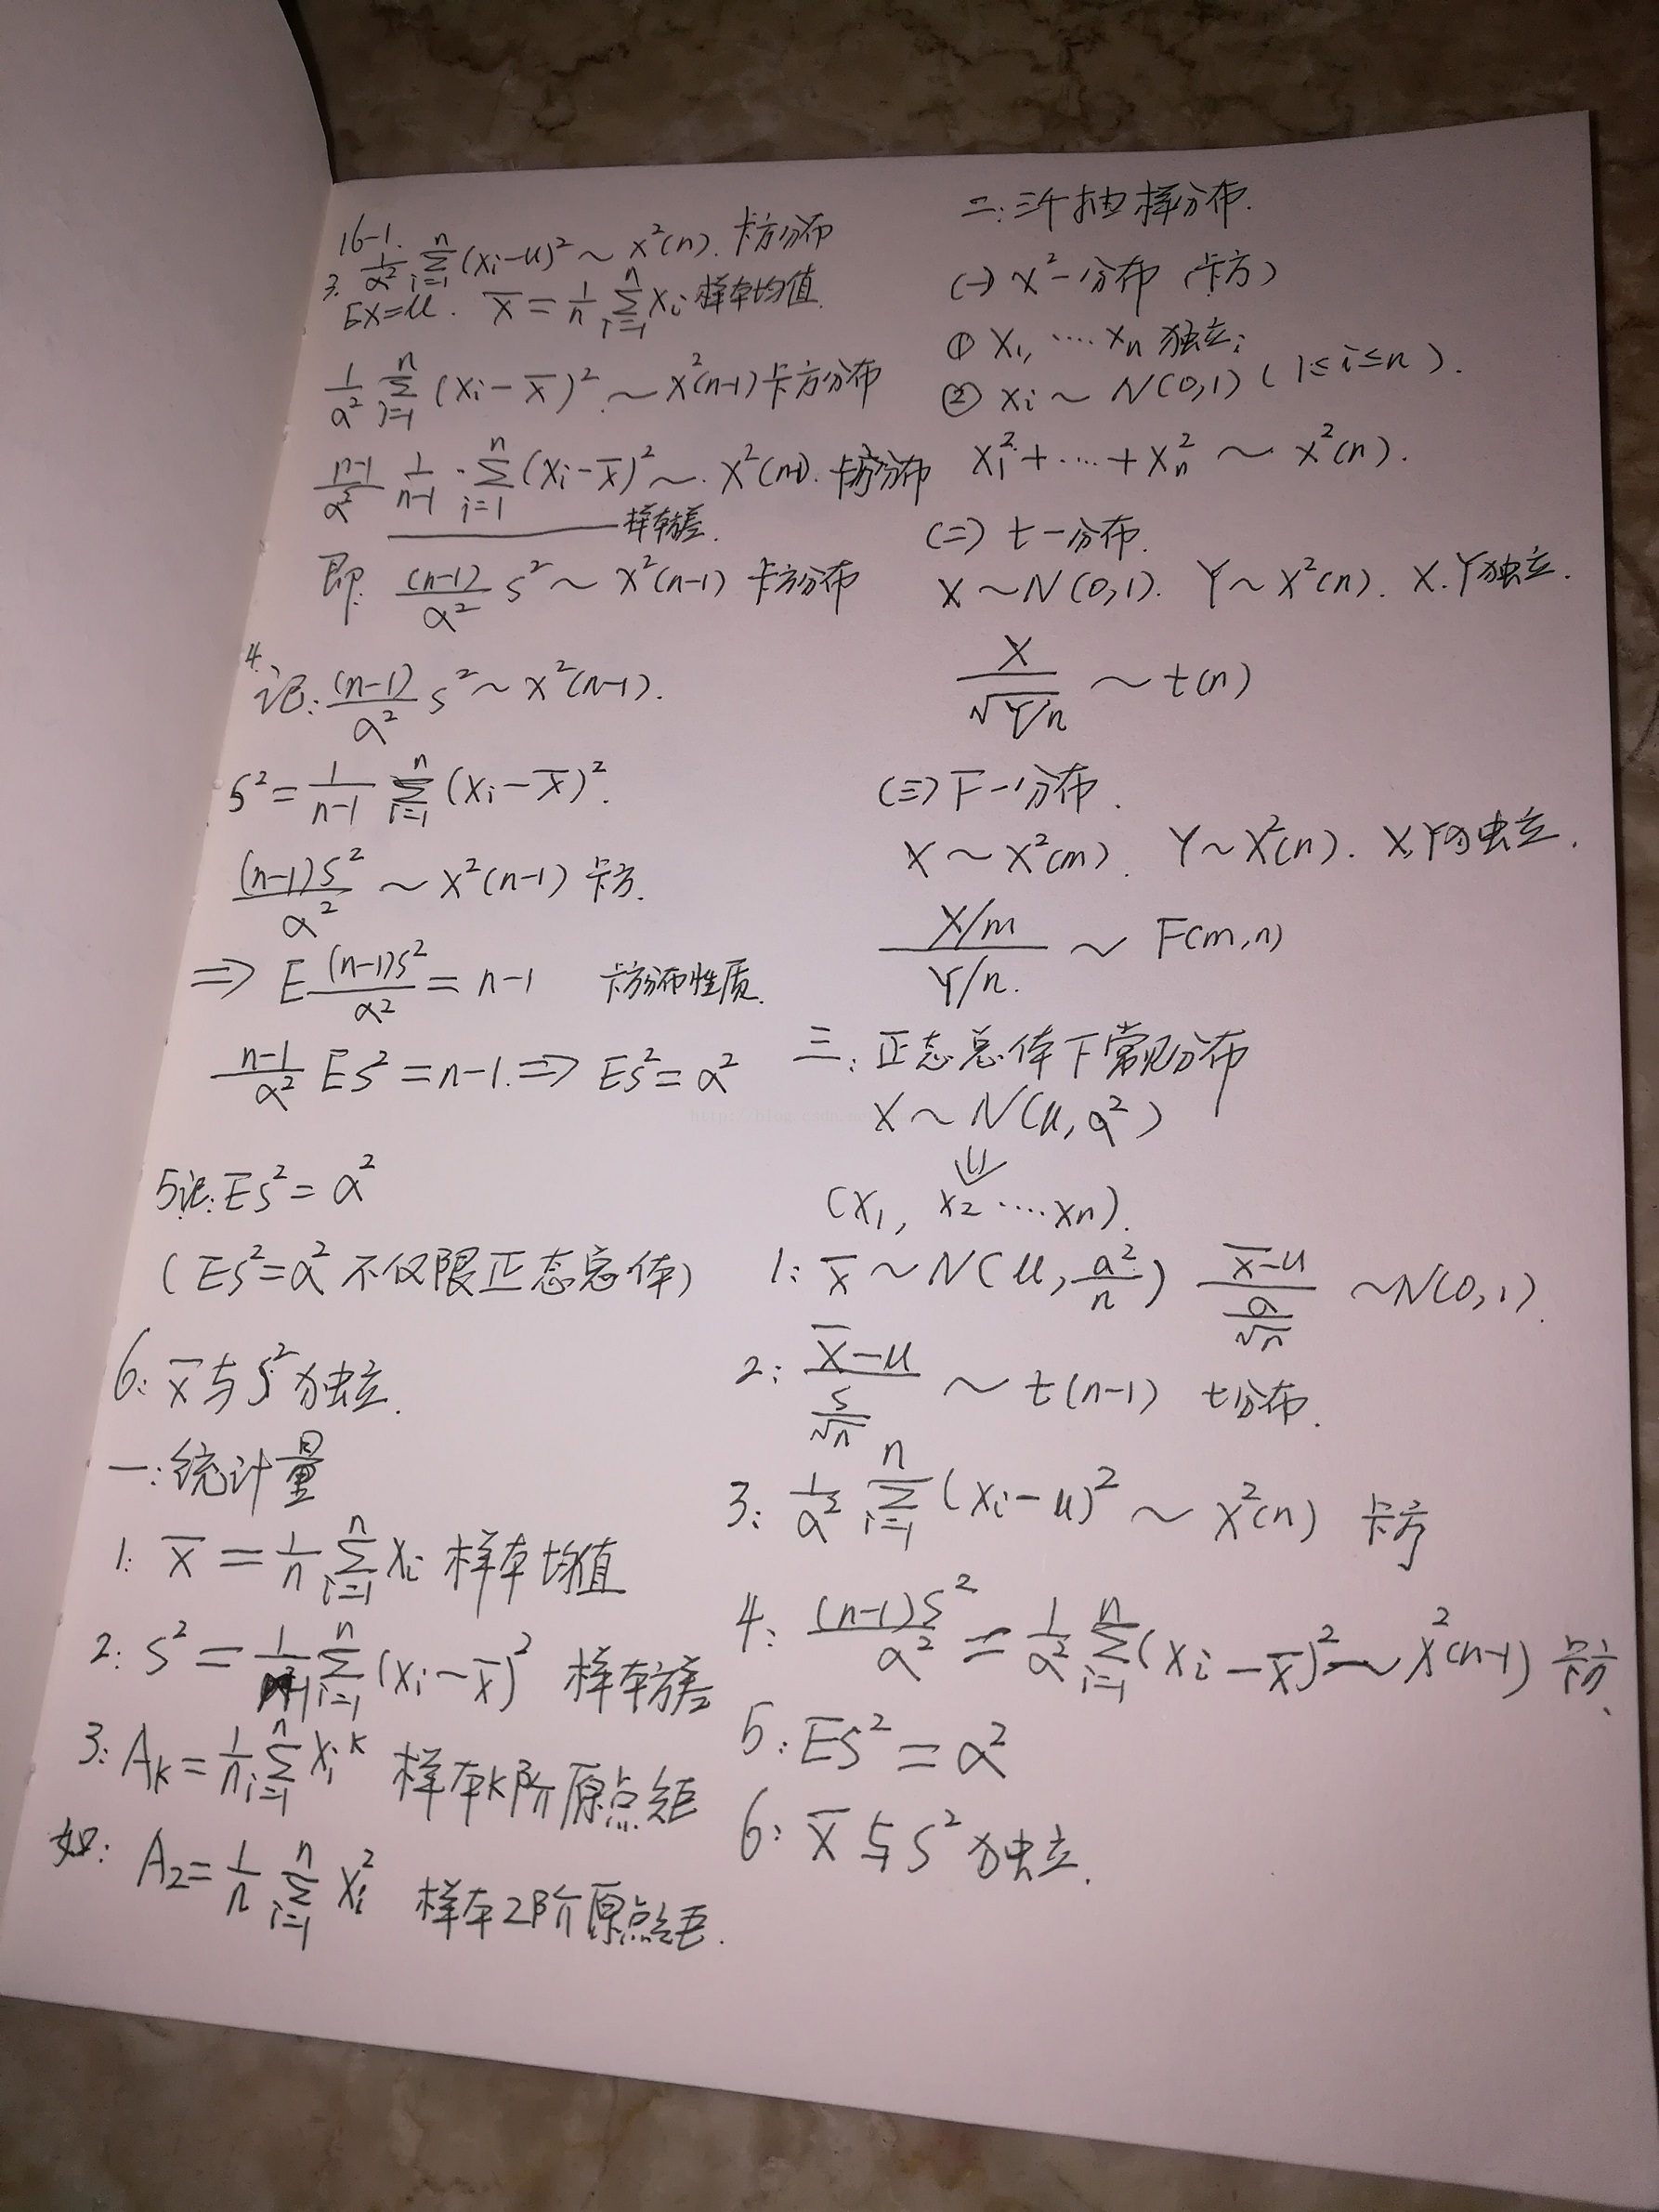 16-1.
3. 1/α² ∑_{i=1}^{n} (Xi-u)² ~ X²(n). 卡方分布
EX=u. X̄ = 1/n ∑_{i=1}^{n} Xi 样本均值.
1/α² ∑_{i=1}^{n} (Xi-X̄)² ~ X²(n-1) 卡方分布
n-1/α² 1/n-1 · ∑_{i=1}^{n} (Xi-X̄)² ~ X²(n-1). 卡方分布
样本方差.
即: (n-1)/α² S² ~ X²(n-1) 卡方分布
4.
记: (n-1)/α² S² ~ X²(n-1).
S² = 1/n-1 ∑_{i=1}^{n} (Xi-X̄)².
(n-1)S²/α² ~ X²(n-1) 卡方.
=> E (n-1)S²/α² = n-1 卡方分布性质.
n-1/α² ES² = n-1. => ES² = α²
5记: ES² = α²
(ES²=α² 不仅限正态总体)
6: X̄与S²独立.
一: 统计量
1: X̄ = 1/n ∑_{i=1}^{n} Xi 样本均值
2: S² = 1/n-1 ∑_{i=1}^{n} (Xi-X̄)² 样本方差
3: AK = 1/n ∑_{i=1}^{n} Xi^K 样本K阶原点矩
如: A2 = 1/n ∑_{i=1}^{n} Xi² 样本2阶原点矩.
二: 三个抽样分布.
(一) X²-分布 (卡方)
① X1, ···· Xn 独立;
② Xi ~ N(0,1) (1≤i≤n).
X1²+···+Xn² ~ X²(n).
(二) t-分布.
X~N(0,1). Y~X²(n). X.Y独立.
X/√(Y/n) ~ t(n)
(三) F-分布.
X~X²(m). Y~X²(n). X,Y独立.
(X/m)/(Y/n). ~ F(m,n)
三: 正态总体下常见分布
X~N(u,α²)
⇓
(X1, X2 ···· Xn).
1: X̄~N(u, α²/n) (X̄-u)/(α/√n) ~N(0,1).
2: (X̄-u)/(S/√n) ~ t(n-1) t分布.
3: 1/α² ∑_{i=1}^{n} (Xi-u)² ~ X²(n) 卡方
4: (n-1)S²/α² = 1/α² ∑_{i=1}^{n} (Xi-X̄)² ~ X²(n-1) 卡方.
5: ES² = α²
6: X̄与S²独立.